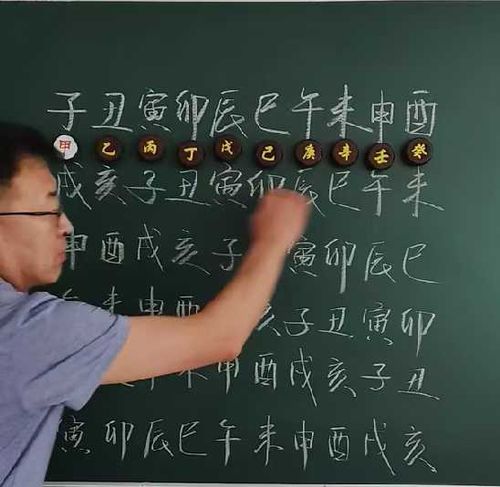 子丑寅卯辰巳午未申酉
甲乙丙丁戊己庚辛壬癸
戌亥子丑寅卯辰巳午未
申酉戌亥子寅卯辰巳
未申酉亥子丑寅卯
申酉戌亥子丑
寅卯辰巳午未申酉戌亥